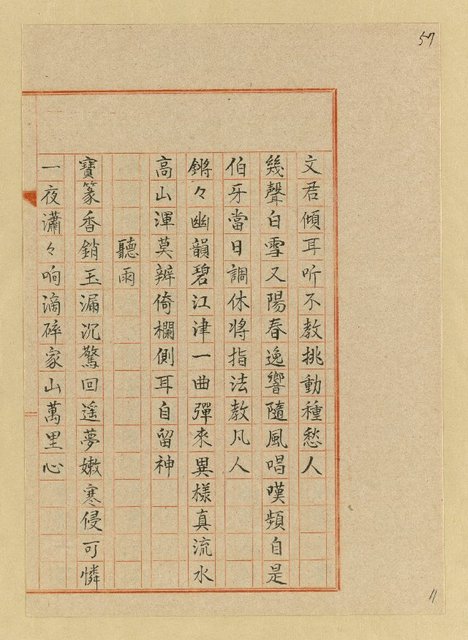 57
文君傾耳听不教挑動種愁人
幾聲白雪又陽春逸響隨風唱嘆頻自是
伯牙當日調休將指法教凡人
鏘々幽韻碧江津一曲彈來異樣真流水
高山渾莫辨倚欄側耳自留神
聽雨
寶篆香銷玉漏沉驚回遥夢嫩寒侵可憐
一夜瀟々响滴碎家山萬里心
11